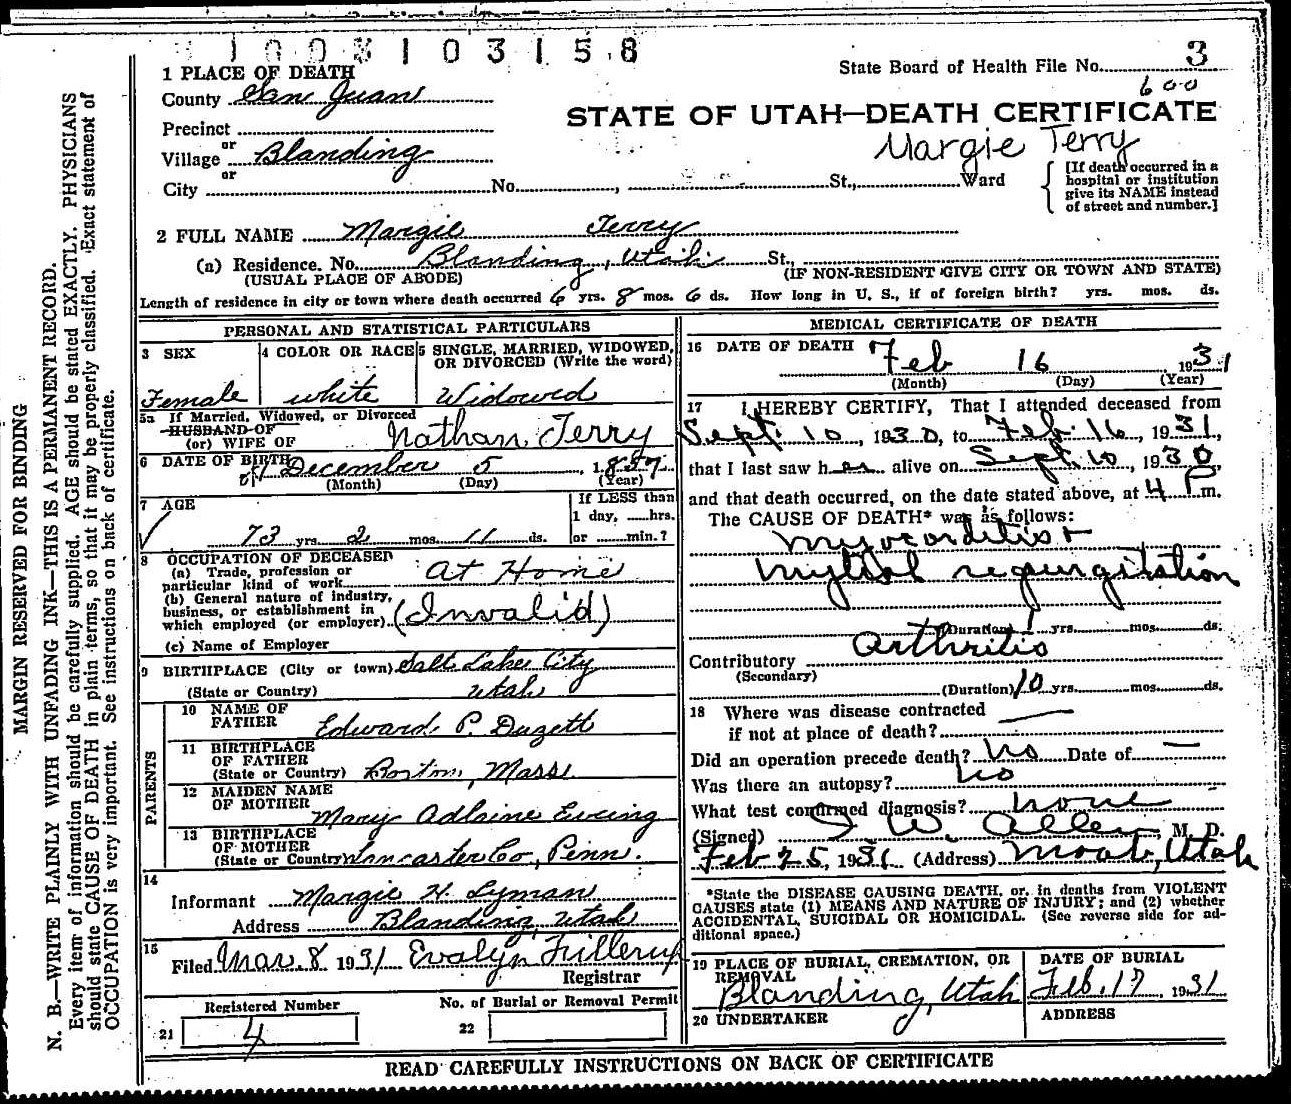 1003103158
State Board of Health File No. 3
600
STATE OF UTAH—DEATH CERTIFICATE
Margie Terry
1 PLACE OF DEATH
County San Juan
Precinct
or
Village Blanding
or
City No. , St., Ward
[If death occurred in a hospital or institution give its NAME instead of street and number.]
2 FULL NAME Margie Terry
(a) Residence. No. Blanding, Utah St.,
(USUAL PLACE OF ABODE) (IF NON-RESIDENT GIVE CITY OR TOWN AND STATE)
Length of residence in city or town where death occurred 6 yrs. 8 mos. 6 ds. How long in U. S., if of foreign birth? yrs. mos. ds.
PERSONAL AND STATISTICAL PARTICULARS
3 SEX
Female
4 COLOR OR RACE
white
5 SINGLE, MARRIED, WIDOWED, OR DIVORCED (Write the word)
Widowed
5a If Married, Widowed, or Divorced
HUSBAND OF
(or) WIFE OF Nathan Terry
6 DATE OF BIRTH December 5, 1857
(Month) (Day) (Year)
7 AGE
73 yrs. 2 mos. 11 ds.
If LESS than
1 day, hrs.
or min.?
8 OCCUPATION OF DECEASED
(a) Trade, profession or
particular kind of work At Home
(b) General nature of industry,
business, or establishment in
which employed (or employer) (Invalid)
(c) Name of Employer
9 BIRTHPLACE (City or town) Salt Lake City
(State or Country) Utah
PARENTS
10 NAME OF
FATHER Edward P. Duzett
11 BIRTHPLACE
OF FATHER
(State or Country) Boston, Mass.
12 MAIDEN NAME
OF MOTHER Mary Adlaine Ewing
13 BIRTHPLACE
OF MOTHER
(State or Country) Lancaster Co, Penn.
14
Informant Margie H. Lyman
Address Blanding, Utah
15
Filed Mar. 8 1931 Evalyn Fillerup
Registrar
Registered Number
21 4
No. of Burial or Removal Permit
22
MEDICAL CERTIFICATE OF DEATH
16 DATE OF DEATH Feb 16 1931
(Month) (Day) (Year)
17 I HEREBY CERTIFY, That I attended deceased from
Sept. 10, 1930, to Feb. 16, 1931,
that I last saw her alive on Sept. 10, 1930,
and that death occurred, on the date stated above, at 4 P m.
The CAUSE OF DEATH* was as follows:
myocorditis +
mytral regurgitation
(Duration) yrs. mos. ds.
Contributory Arthritis
(Secondary)
(Duration) 10 yrs. mos. ds.
18 Where was disease contracted
if not at place of death?
Did an operation precede death? No Date of —
Was there an autopsy? No
What test confirmed diagnosis? none
(Signed) I W. Allen, M. D.
Feb 25, 1931 (Address) Moab, Utah
*State the DISEASE CAUSING DEATH, or, in deaths from VIOLENT
CAUSES state (1) MEANS AND NATURE OF INJURY; and (2) whether
ACCIDENTAL, SUICIDAL OR HOMICIDAL. (See reverse side for ad-
ditional space.)
19 PLACE OF BURIAL, CREMATION, OR
REMOVAL
Blanding, Utah
DATE OF BURIAL
Feb. 17, 1931
20 UNDERTAKER
ADDRESS
READ CAREFULLY INSTRUCTIONS ON BACK OF CERTIFICATE
MARGIN RESERVED FOR BINDING
N. B.—WRITE PLAINLY WITH UNFADING INK—THIS IS A PERMANENT RECORD.
Every item of information should be carefully supplied. AGE should be stated EXACTLY. PHYSICIANS
should state CAUSE OF DEATH in plain terms, so that it may be properly classified. Exact statement of
OCCUPATION is very important. See instructions on back of certificate.